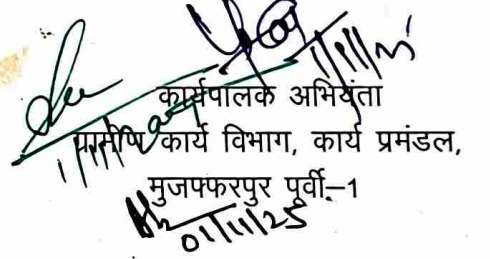 1/11/25
कार्यपालक अभियंता
1/11/25
ग्रामीण कार्य विभाग, कार्य प्रमंडल,
मुजफ्फरपुर पूर्वी.–1
01/11/25